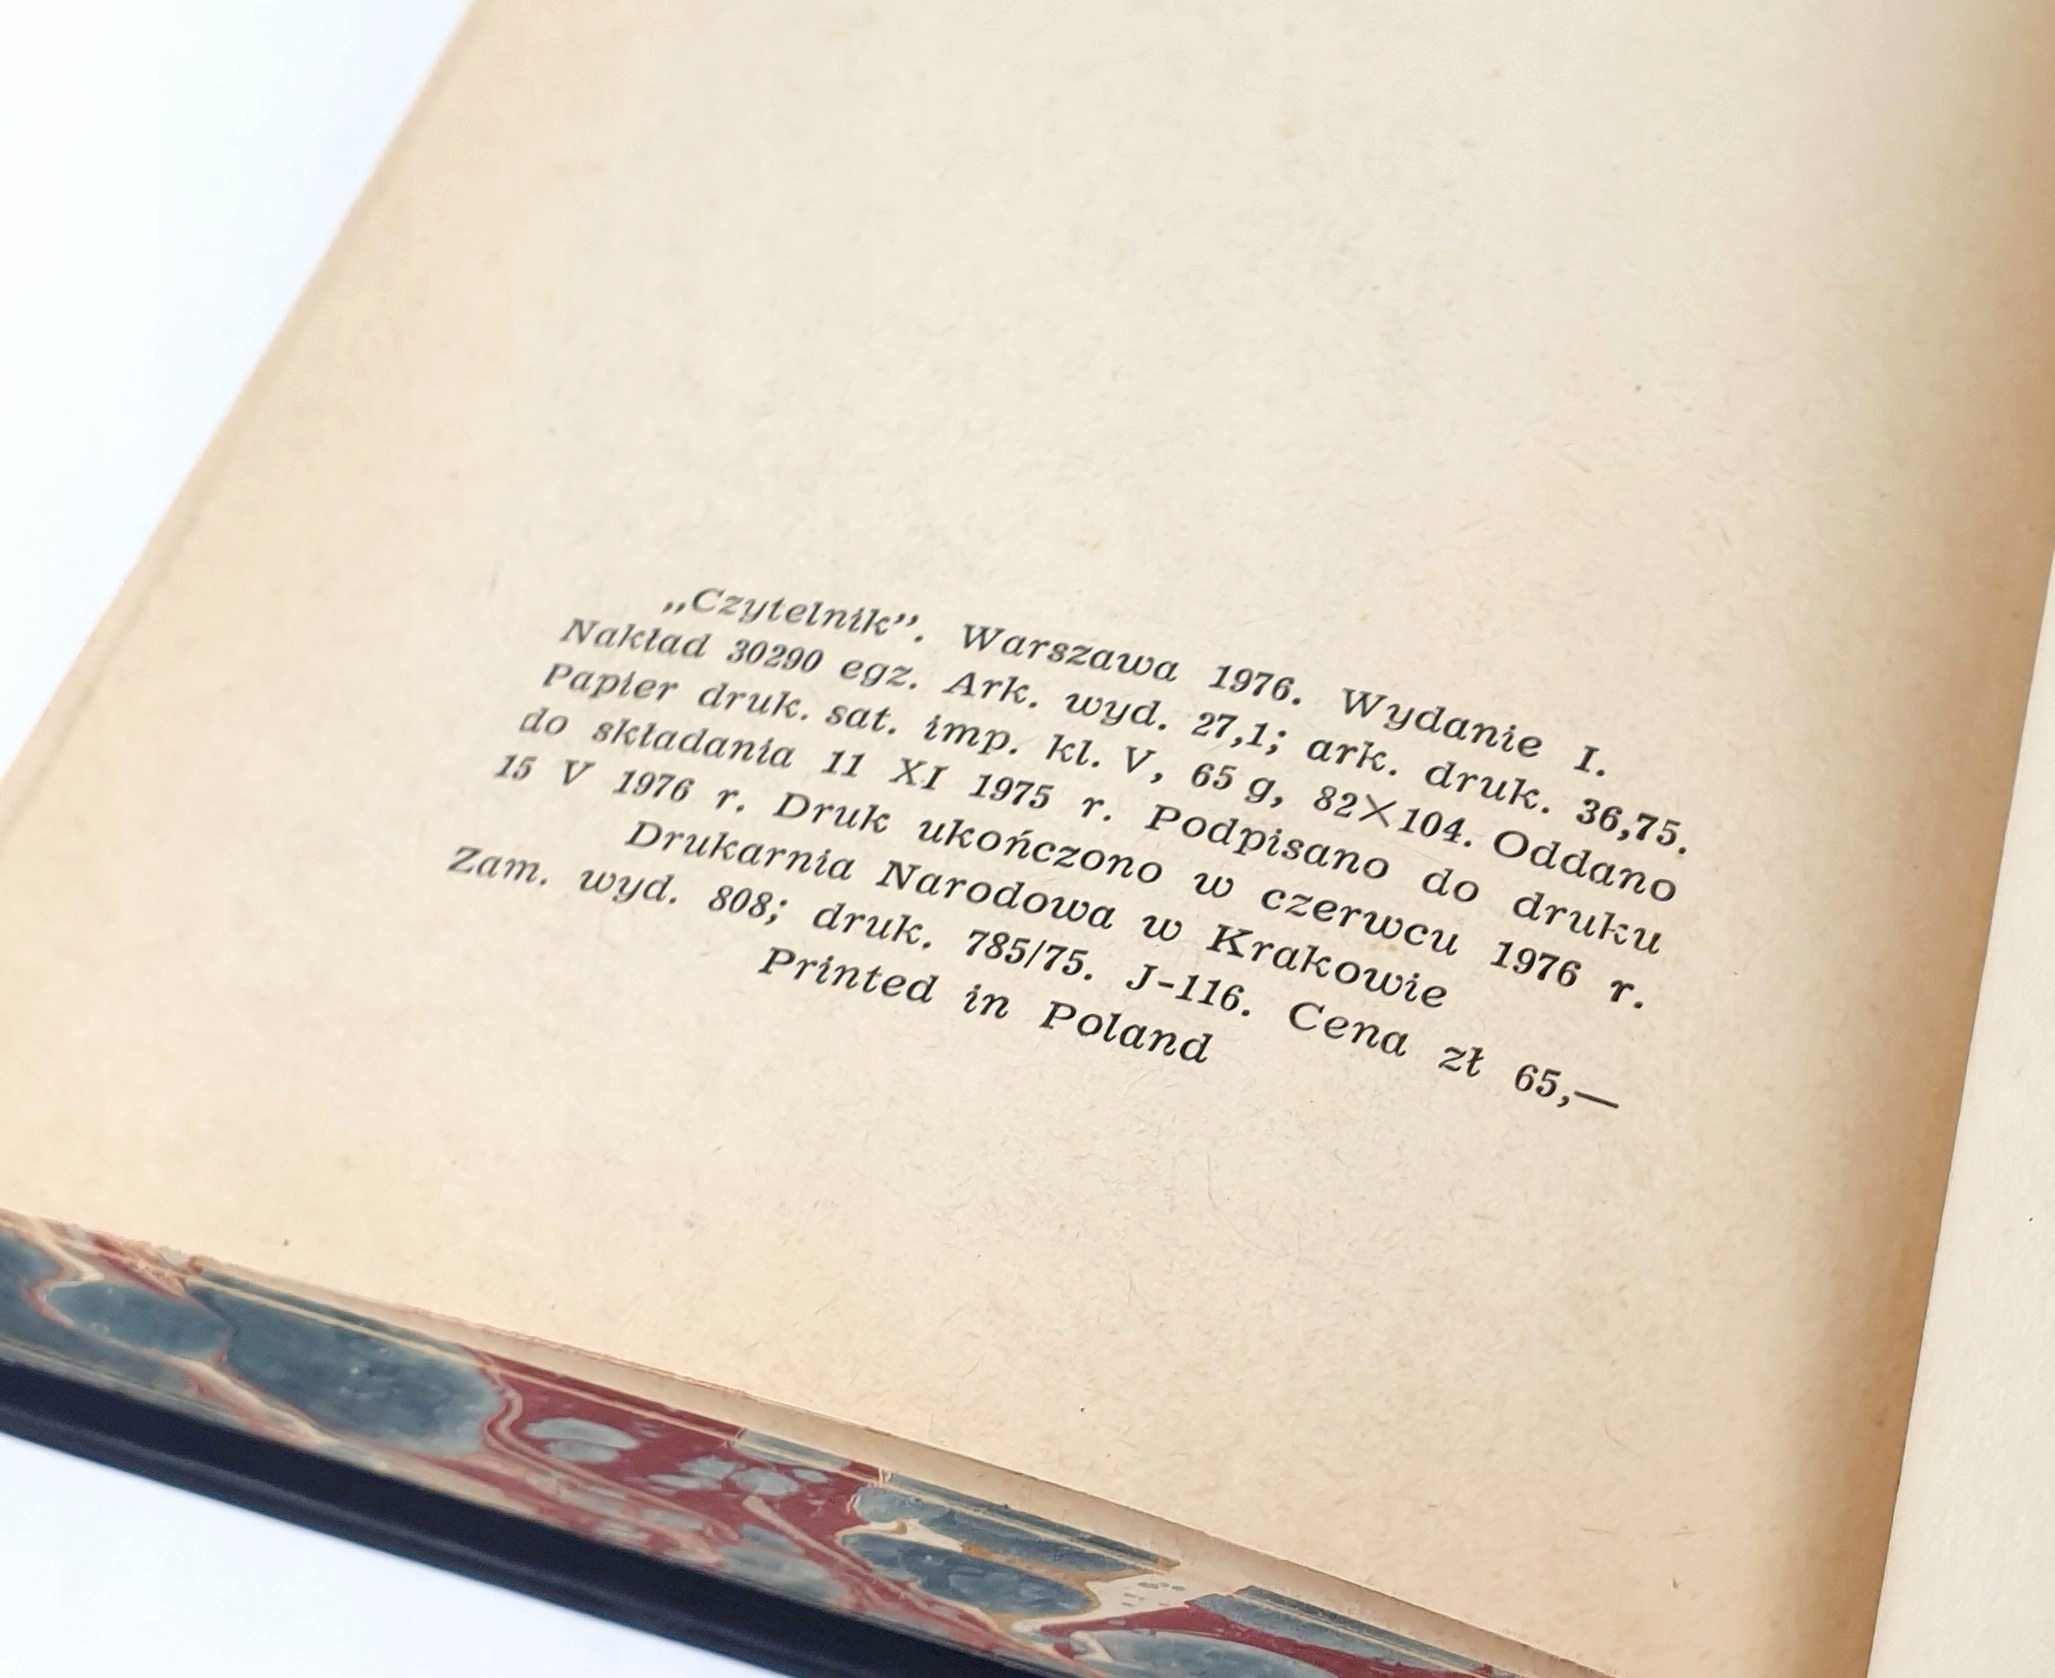 „Czytelnik”. Warszawa 1976. Wydanie I.
Nakład 30290 egz. Ark. wyd. 27,1; ark. druk. 36,75.
Papier druk. sat. imp. kl. V, 65 g, 82×104. Oddano
do składania 11 XI 1975 r. Podpisano do druku
15 V 1976 r. Druk ukończono w czerwcu 1976 r.
Drukarnia Narodowa w Krakowie
Zam. wyd. 808; druk. 785/75. J-116. Cena zł 65,—
Printed in Poland